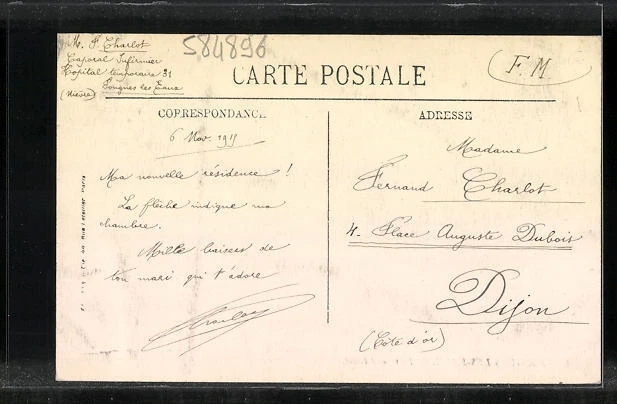 M. F. Charlot
Caporal Infirmier
Hôpital temporaire 31
Pougues les Eaux
(Nièvre)
584896
CARTE POSTALE
F. M
CORRESPONDANCE
ADRESSE
6 Nov. 1915
Ma nouvelle résidence !
La flèche indique ma
chambre.
Mille baisers de
ton mari qui t'adore
Madame
Fernand Charlot
4. Place Auguste Dubois
Dijon
(Côte d'or)